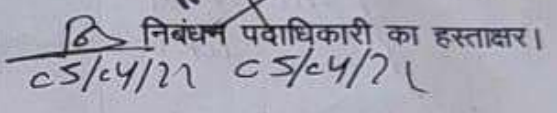 निबंधन पदाधिकारी का हस्ताक्षर।
05/04/21 05/04/21